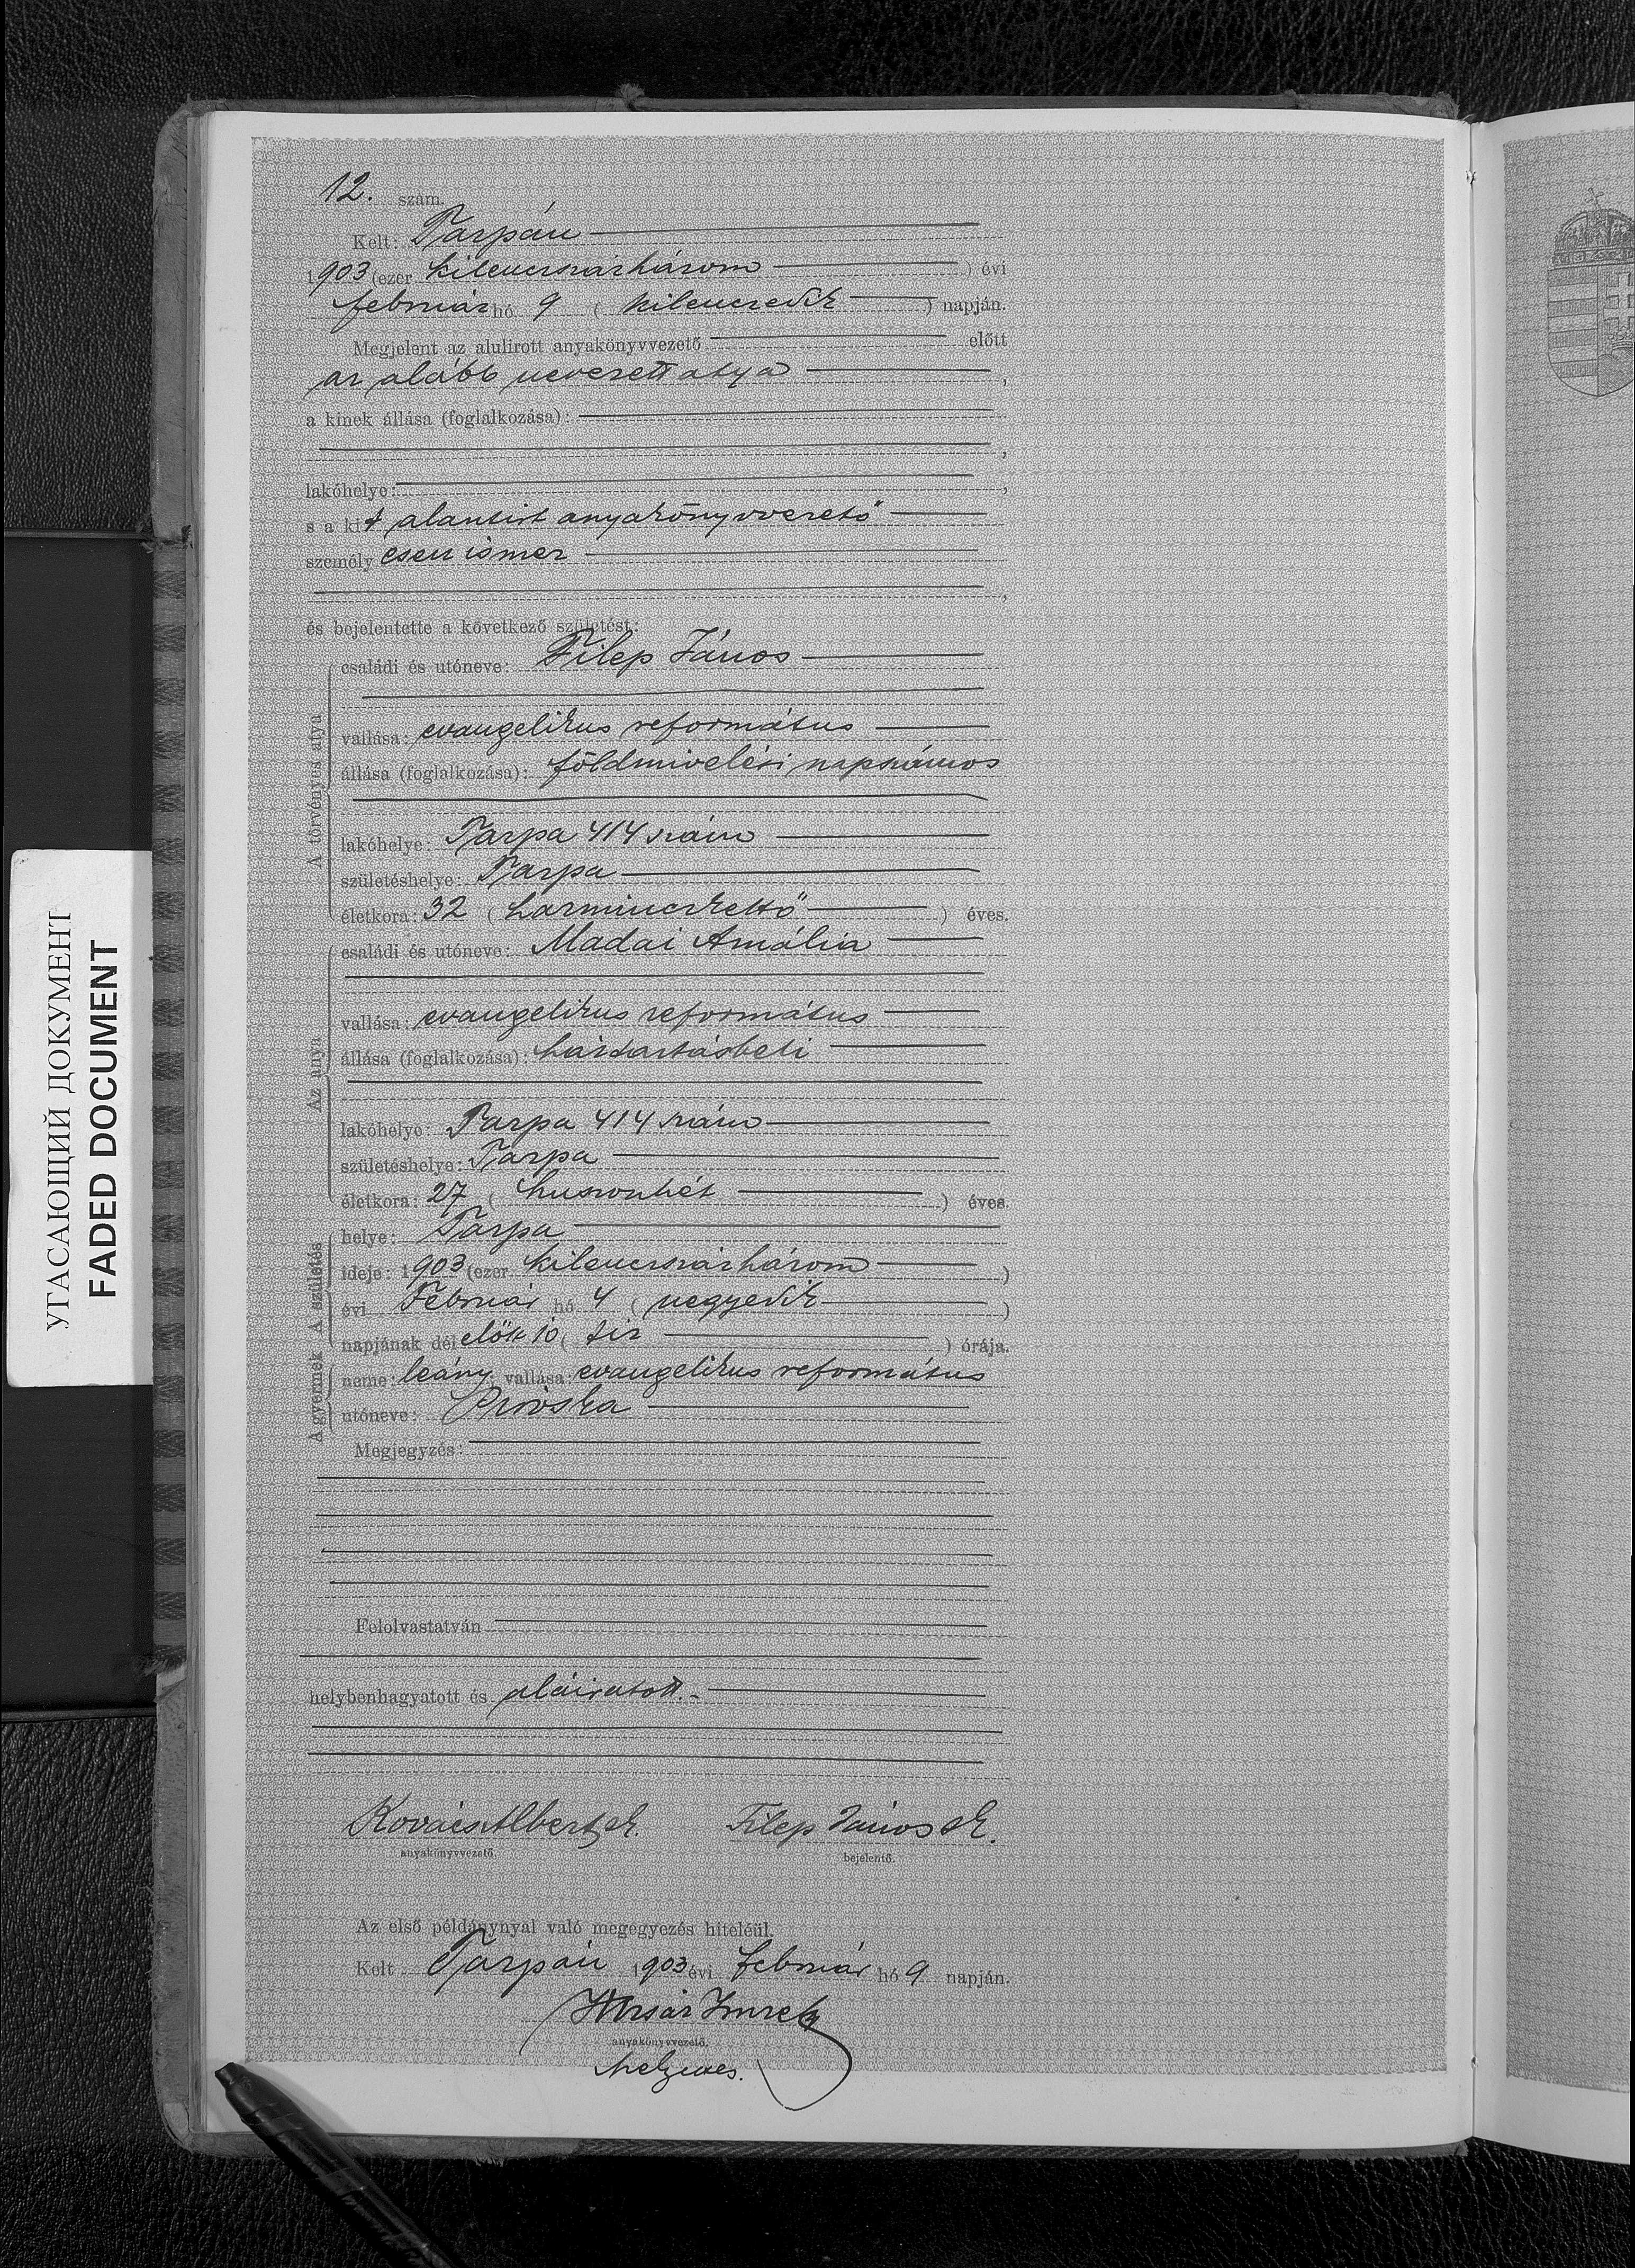 12. szám.
Kelt: Tarpán
1903 (ezer kilencszázhárom ) évi
február hó 9 ( kilenczedik ) napján.
Megjelent az alulirott anyakönyvvezető előtt
az alább nevezett atya ,
a kinek állása (foglalkozása):
,
lakóhelye: ,
s a kit alantirt anyakönyvvezető
személyesen ismer
,
és bejelentette a következő születést:
A törvényes atya
családi és utóneve: Filep János
vallása: evangelikus református
állása (foglalkozása): földmivelési napszámos
lakóhelye: Tarpa 414 szám
születéshelye: Tarpa
életkora: 32 ( harminczkettő ) éves.
Az anya
családi és utóneve: Madai Amália
vallása: evangelikus református
állása (foglalkozása): háztartásbeli
lakóhelye: Tarpa 414 szám
születéshelye: Tarpa
életkora: 27 ( huszonhét ) éves.
A születés
helye: Tarpa
ideje: 1903 (ezer kilencszázhárom )
évi Február hó 4 ( negyedik )
napjának dél előtt 10 ( tiz ) órája.
A gyermek
neme: leány; vallása: evangelikus református
utóneve: Piroska
Megjegyzés:
Felolvastatván
helybenhagyatott és aláiratott.-
Kovács Albert sk. Filep János sk.
anyakönyvvezető. bejelentő.
Az első példánynyal való megegyezés hiteléül.
Kelt Tarpán 1903 évi február hó 9 napján.
Imre
anyakönyvvezető.
helyettes.
УГАСАЮЩИЙ ДОКУМЕНТ
FADED DOCUMENT